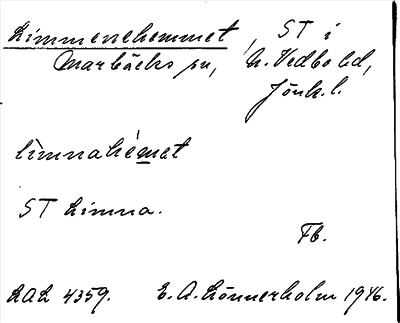 Limmerehemmet, ST i
Marbäcks sn, N. Vedbo hd,
Jönk. l.
lìmnahémet
ST Limna.
Fb.
LAL 4359. E. A. Lönnerholm 1946.